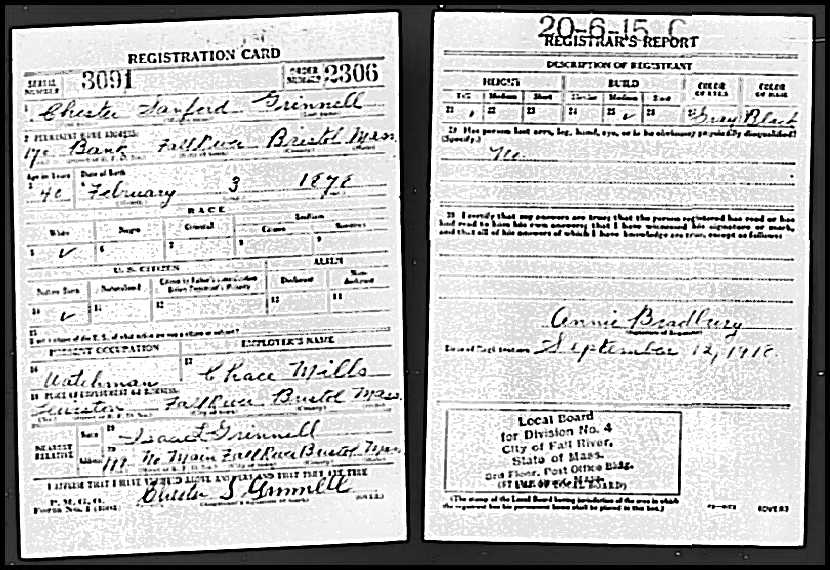 REGISTRATION CARD
SERIAL NUMBER 3091 ORDER NUMBER 2306
1 Chester Sanford Grinnell
2 PERMANENT HOME ADDRESS:
Bank Fall River Bristol Mass.
Age in Years Date of Birth
40 February 3 1878
RACE
White Negro Oriental Indian
Citizen
5 ✓ 6 7 8 9
U. S. CITIZEN ALIEN
Native Born Naturalized Declarant Non-declarant
10 ✓ 11 12 13 14
15
PRESENT OCCUPATION EMPLOYER'S NAME
16 Watchman 17 Chace Mills
18 PLACE OF EMPLOYMENT OR BUSINESS:
Fall River Bristol Mass.
NEAREST RELATIVE
Name 19 Grinnell
Address 20 No. Main Fall River Bristol Mass
I AFFIRM THAT I HAVE VERIFIED ABOVE ANSWERS AND THAT THEY ARE TRUE
P. M. G. O.
Form No. 1 (Red)
Chester S Grinnell
(OVER)
20-6-15 C
REGISTRAR'S REPORT
DESCRIPTION OF REGISTRANT
HEIGHT BUILD COLOR OF EYES COLOR OF HAIR
Tall Medium Short Slender Medium Stout
21 22 23 24 25 ✓ 26 27 Gray Black
29 Has person lost arm, leg, hand, eye, or is he obviously physically disqualified?
(Specify.)
No.
30 I certify that my answers are true; that the person registered has read or has
had read to him his own answers; that I have witnessed his signature or mark,
and that all of his answers of which I have knowledge are true, except as follows:
Annie Bradbury
Date of Registration September 12, 1918.
Local Board
for Division No. 4
City of Fall River,
State of Mass.
3rd Floor, Post Office Bldg.
Mass.
(STAMP OF LOCAL BOARD)
(The stamp of the Local Board having jurisdiction of the area in which
the registrant has his permanent home shall be placed in this box.)
(OVER)